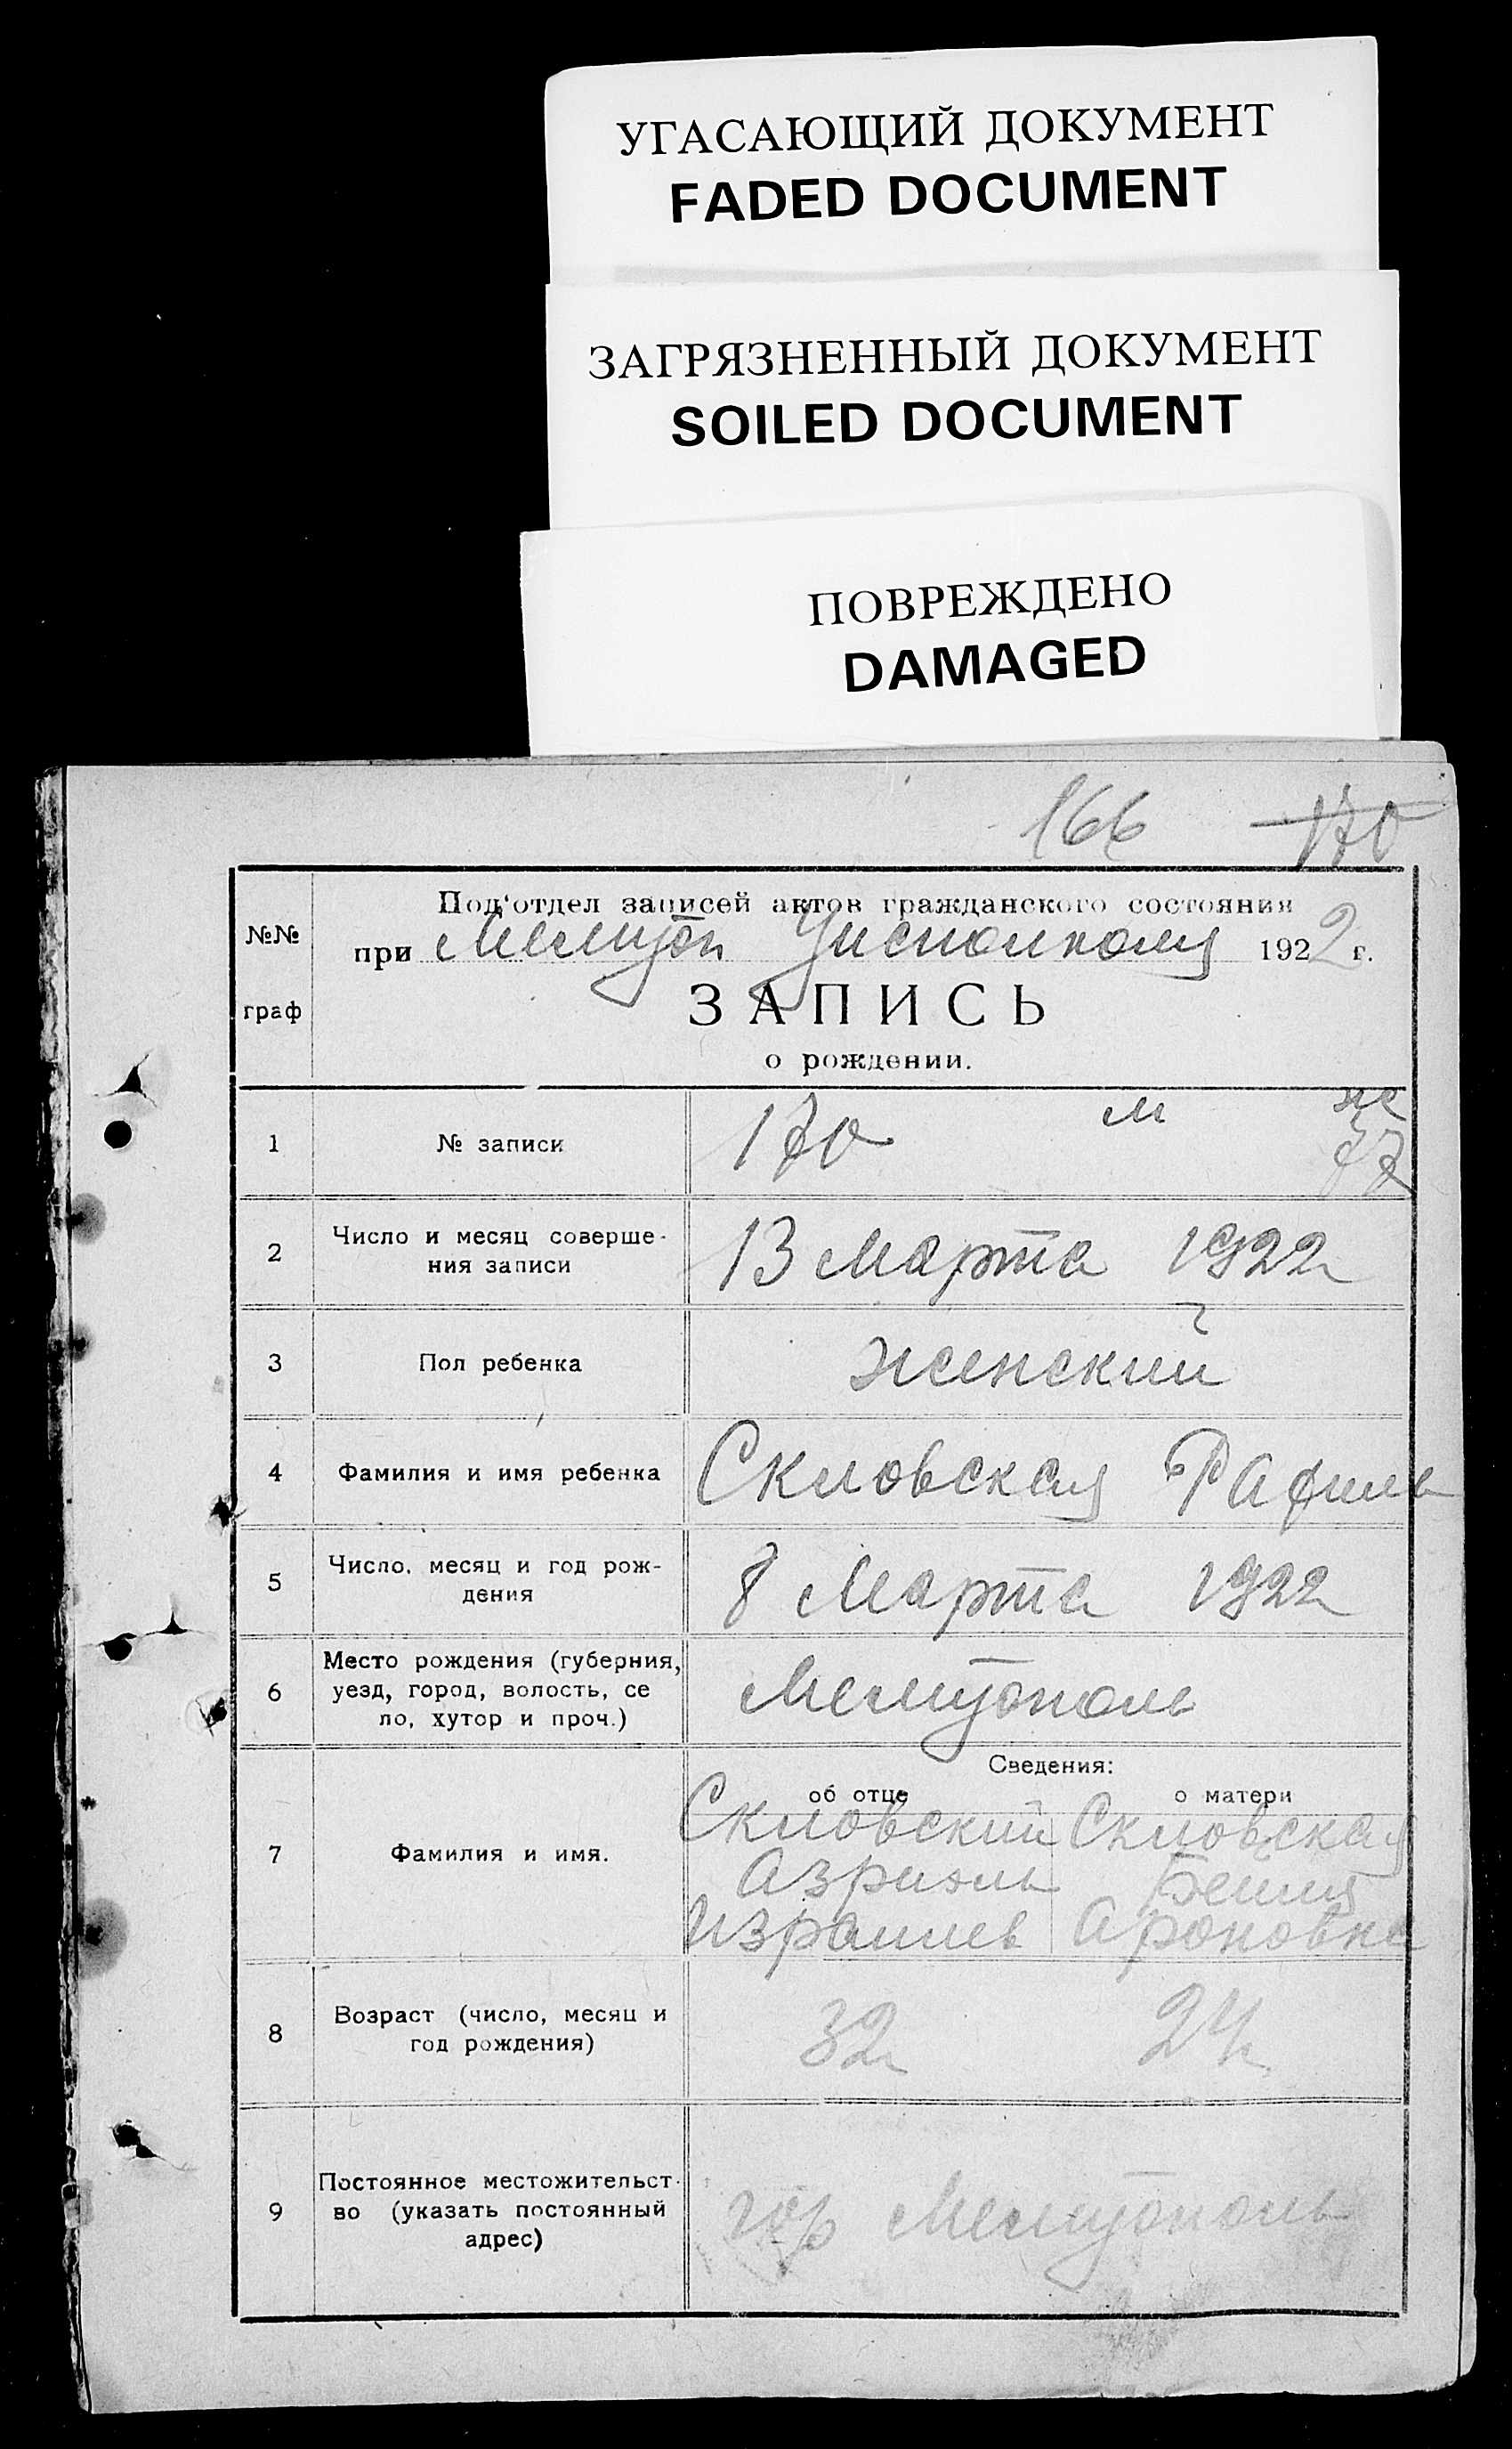 УГАСАЮЩИЙ ДОКУМЕНТ
FADED DOCUMENT
ЗАГРЯЗНЕННЫЙ ДОКУМЕНТ
SOILED DOCUMENT
ПОВРЕЖДЕНО
DAMAGED
166 170
№№ граф
Под‘отдел записей актов гражданского состояния
при Мелитоп Уисполкому 1922 г.
ЗАПИСЬ
о рождении.
1 № записи 170 м ж 77
2 Число и месяц соверше-
ния записи 13 Марта 1922
3 Пол ребенка женский
4 Фамилия и имя ребенка Скловская Рафиль
5 Число, месяц и год рож-
дения 8 Марта 1922
6 Место рождения (губерния,
уезд, город, волость, се
ло, хутор и проч.) Мелитополь
Сведения:
об отце о матери
7 Фамилия и имя.
Скловский Скловская
Азриэль Бейля
Израилев Ароновна
8 Возраст (число, месяц и
год рождения) 32 24
9 Постоянное местожительст-
во (указать постоянный
адрес) гор Мелитополь